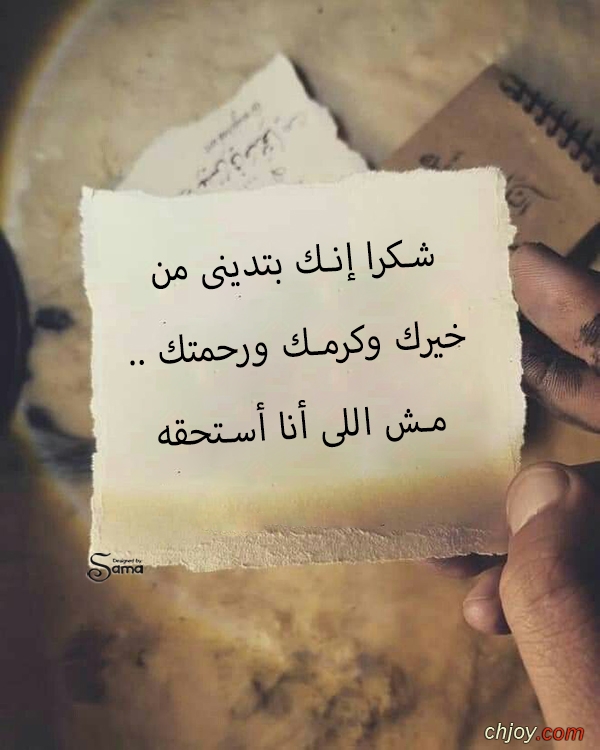 شـكرا إنـك بتدينى من
خيرك وكرمـك ورحمتك ..
مـش اللى أنا أسـتحقه
Designed by
Sama
chjoy.com